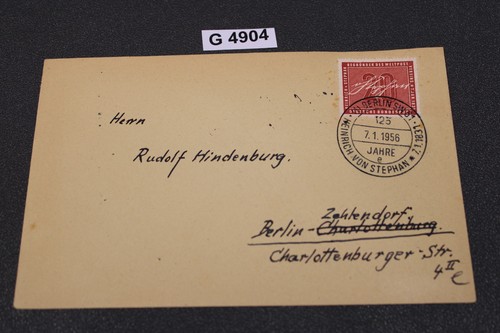 G 4904
20
(1) BERLIN SW 61 • 7.1.1831
125
7.1.1956
JAHRE
e
HEINRICH VON STEPHAN
Herrn
Rudolf Hindenburg.
Zehlendorf
Berlin - Charlottenburg.
Charlottenburger - Str.
4 II e